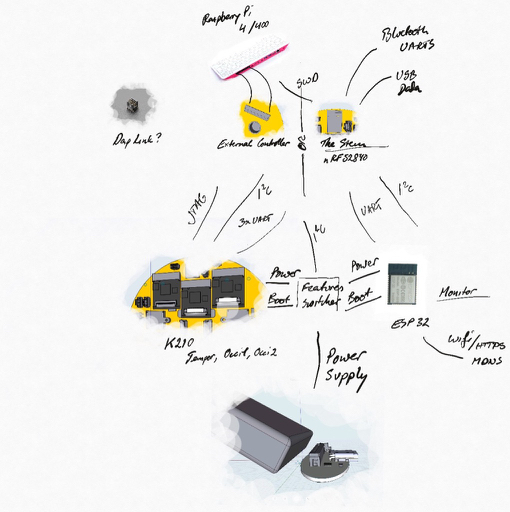 Raspberry Pi
4/400
Bluetooth
UARTS
USB
Data
SWD
Dap Link?
External Controller
The Stem
nRF52840
JTAG
I²C
3xUART
UART
I²C
Power
Boot
Features
Switcher
Power
Boot
Monitor
ESP32
K210
Temper, Occi1, Occi2
Wifi/HTTPS
MDNS
Power
Supply